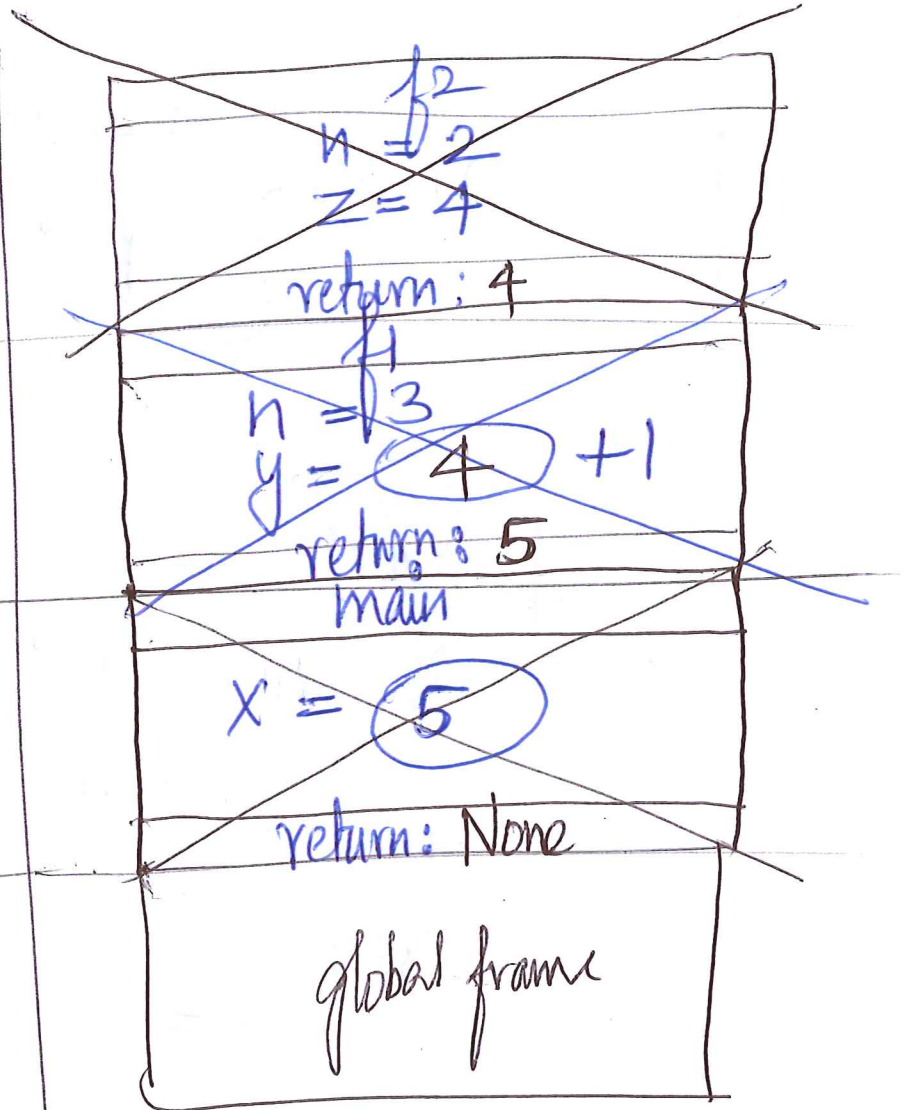 f2
n = 2
z = 4
return: 4
f1
n = 3
y = 4 +1
return: 5
main
x = 5
return: None
global frame